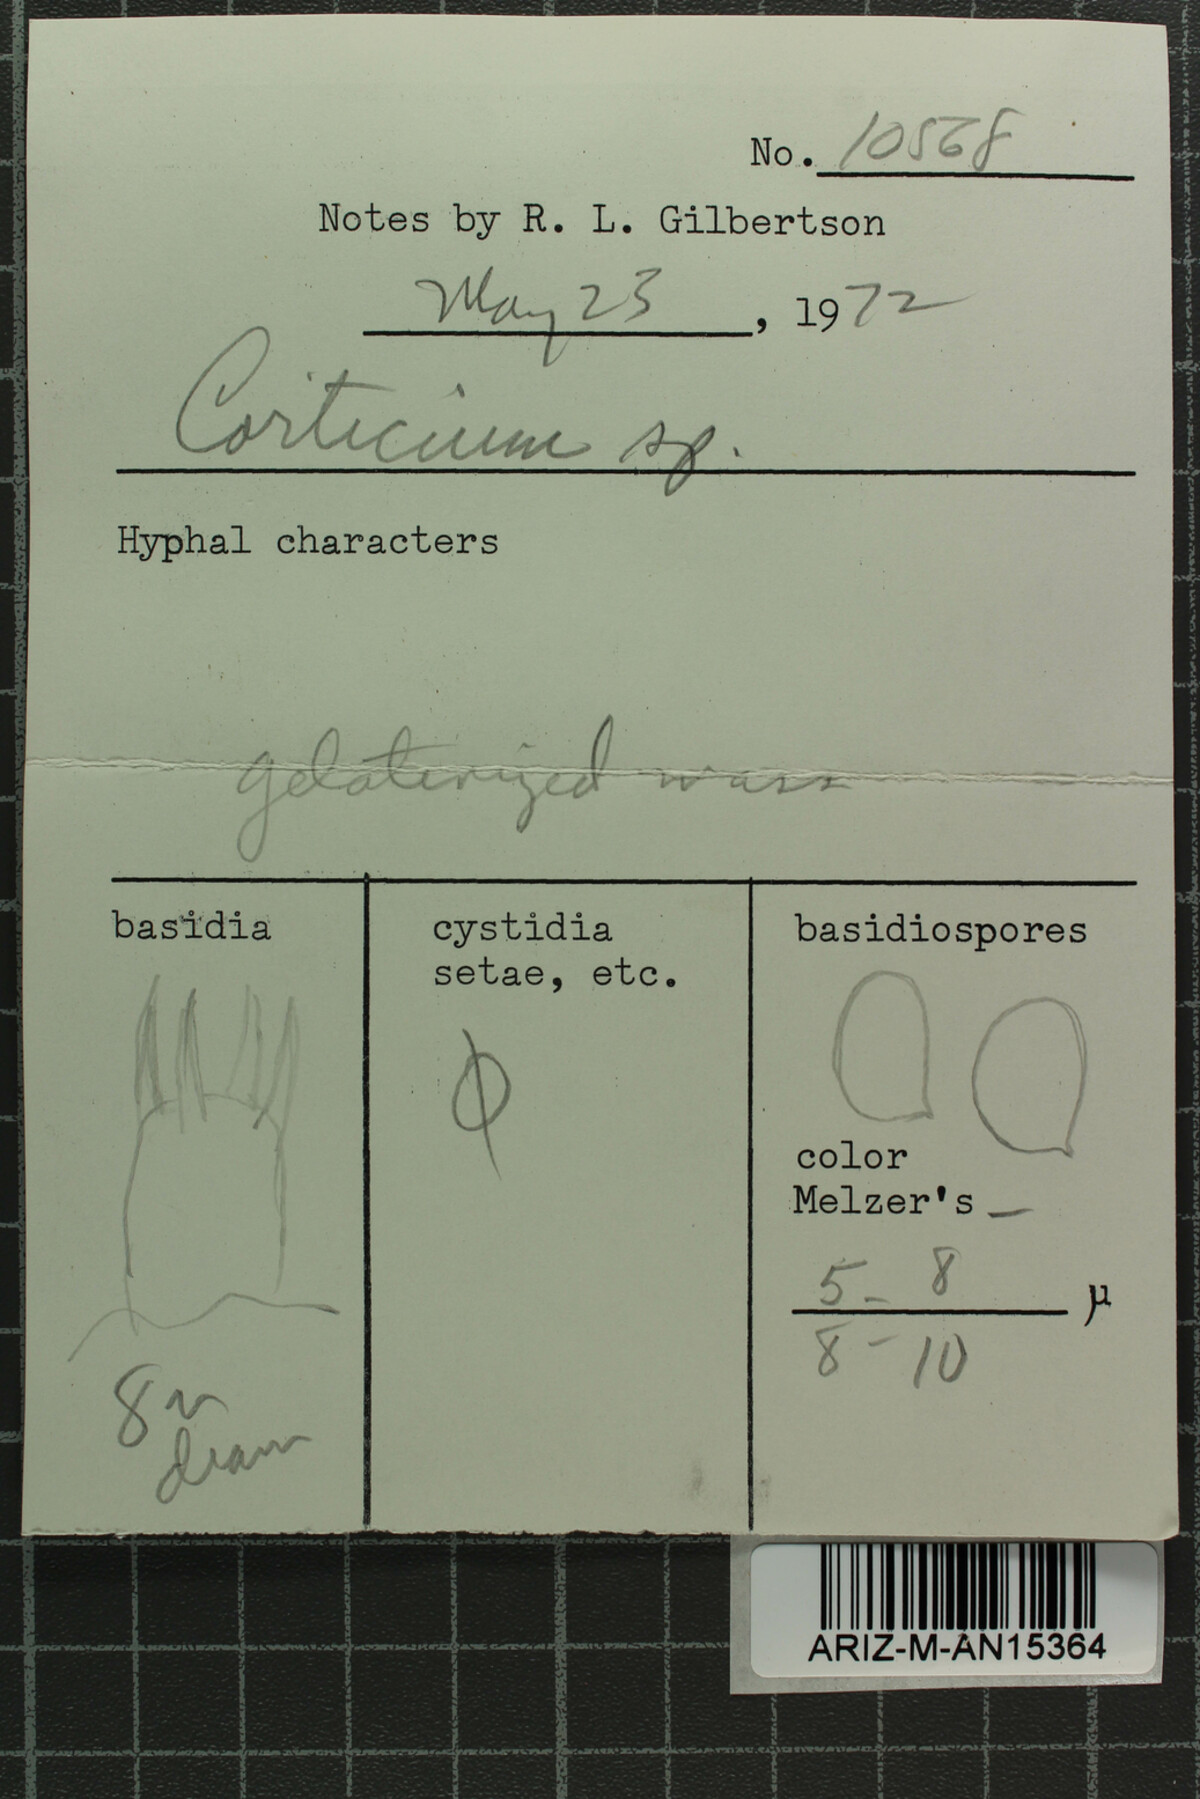 No. 10568
Notes by R. L. Gilbertson
May 23, 1972
Corticium sp.
Hyphal characters
gelatinized mass
basidia
cystidia
setae, etc.
φ
basidiospores
color
Melzer's –
5 – 8 µ
8 – 10
8 µ
diam
ARIZ-M-AN15364